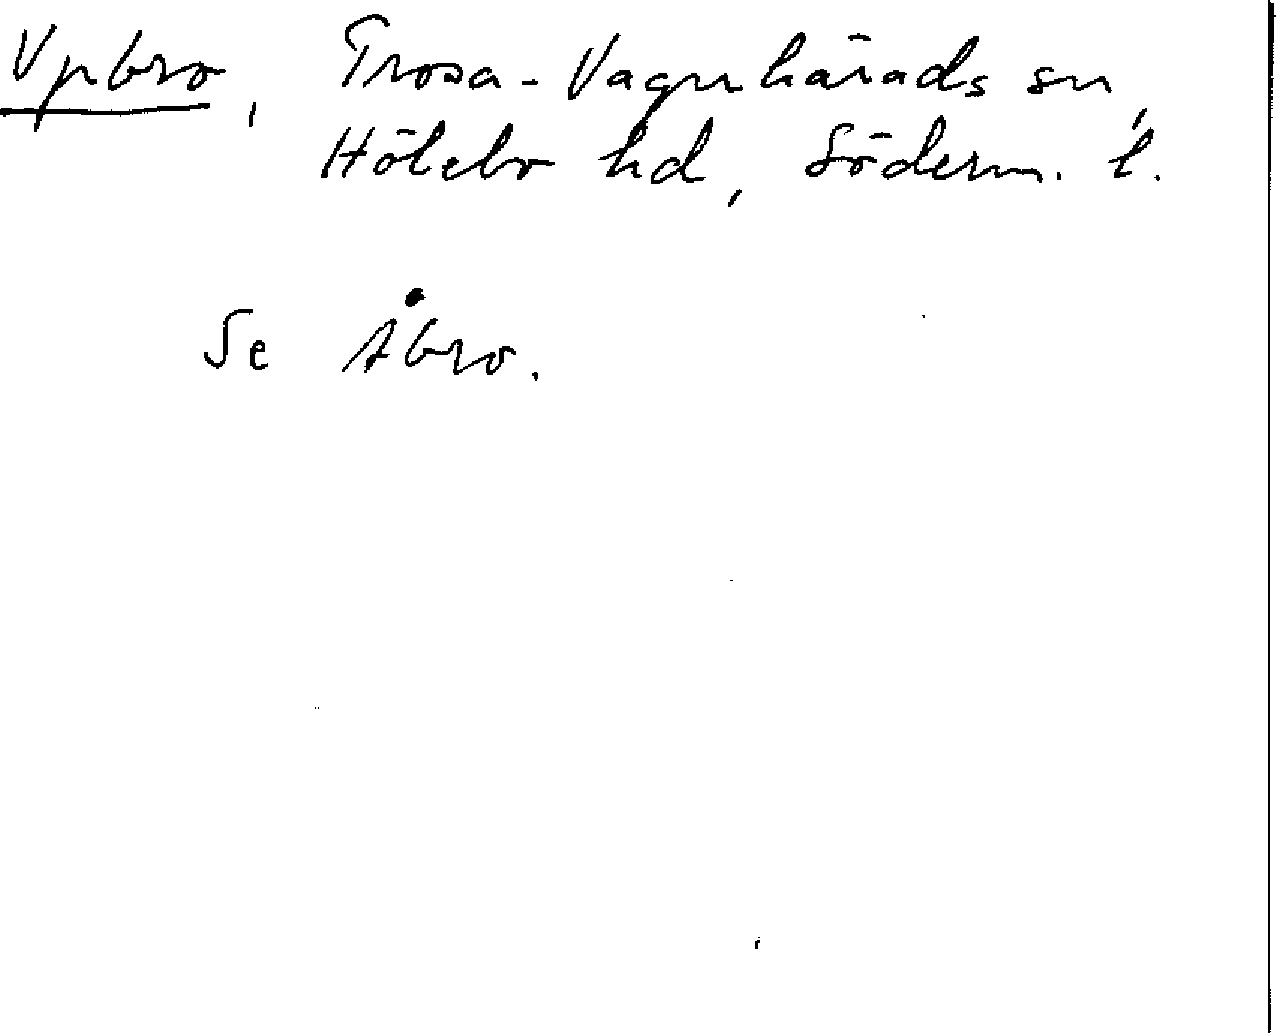 Vpbro, Trosa-Vagnhärads sn,
Hölebo hd, Söderm. l.
Se Åbro.